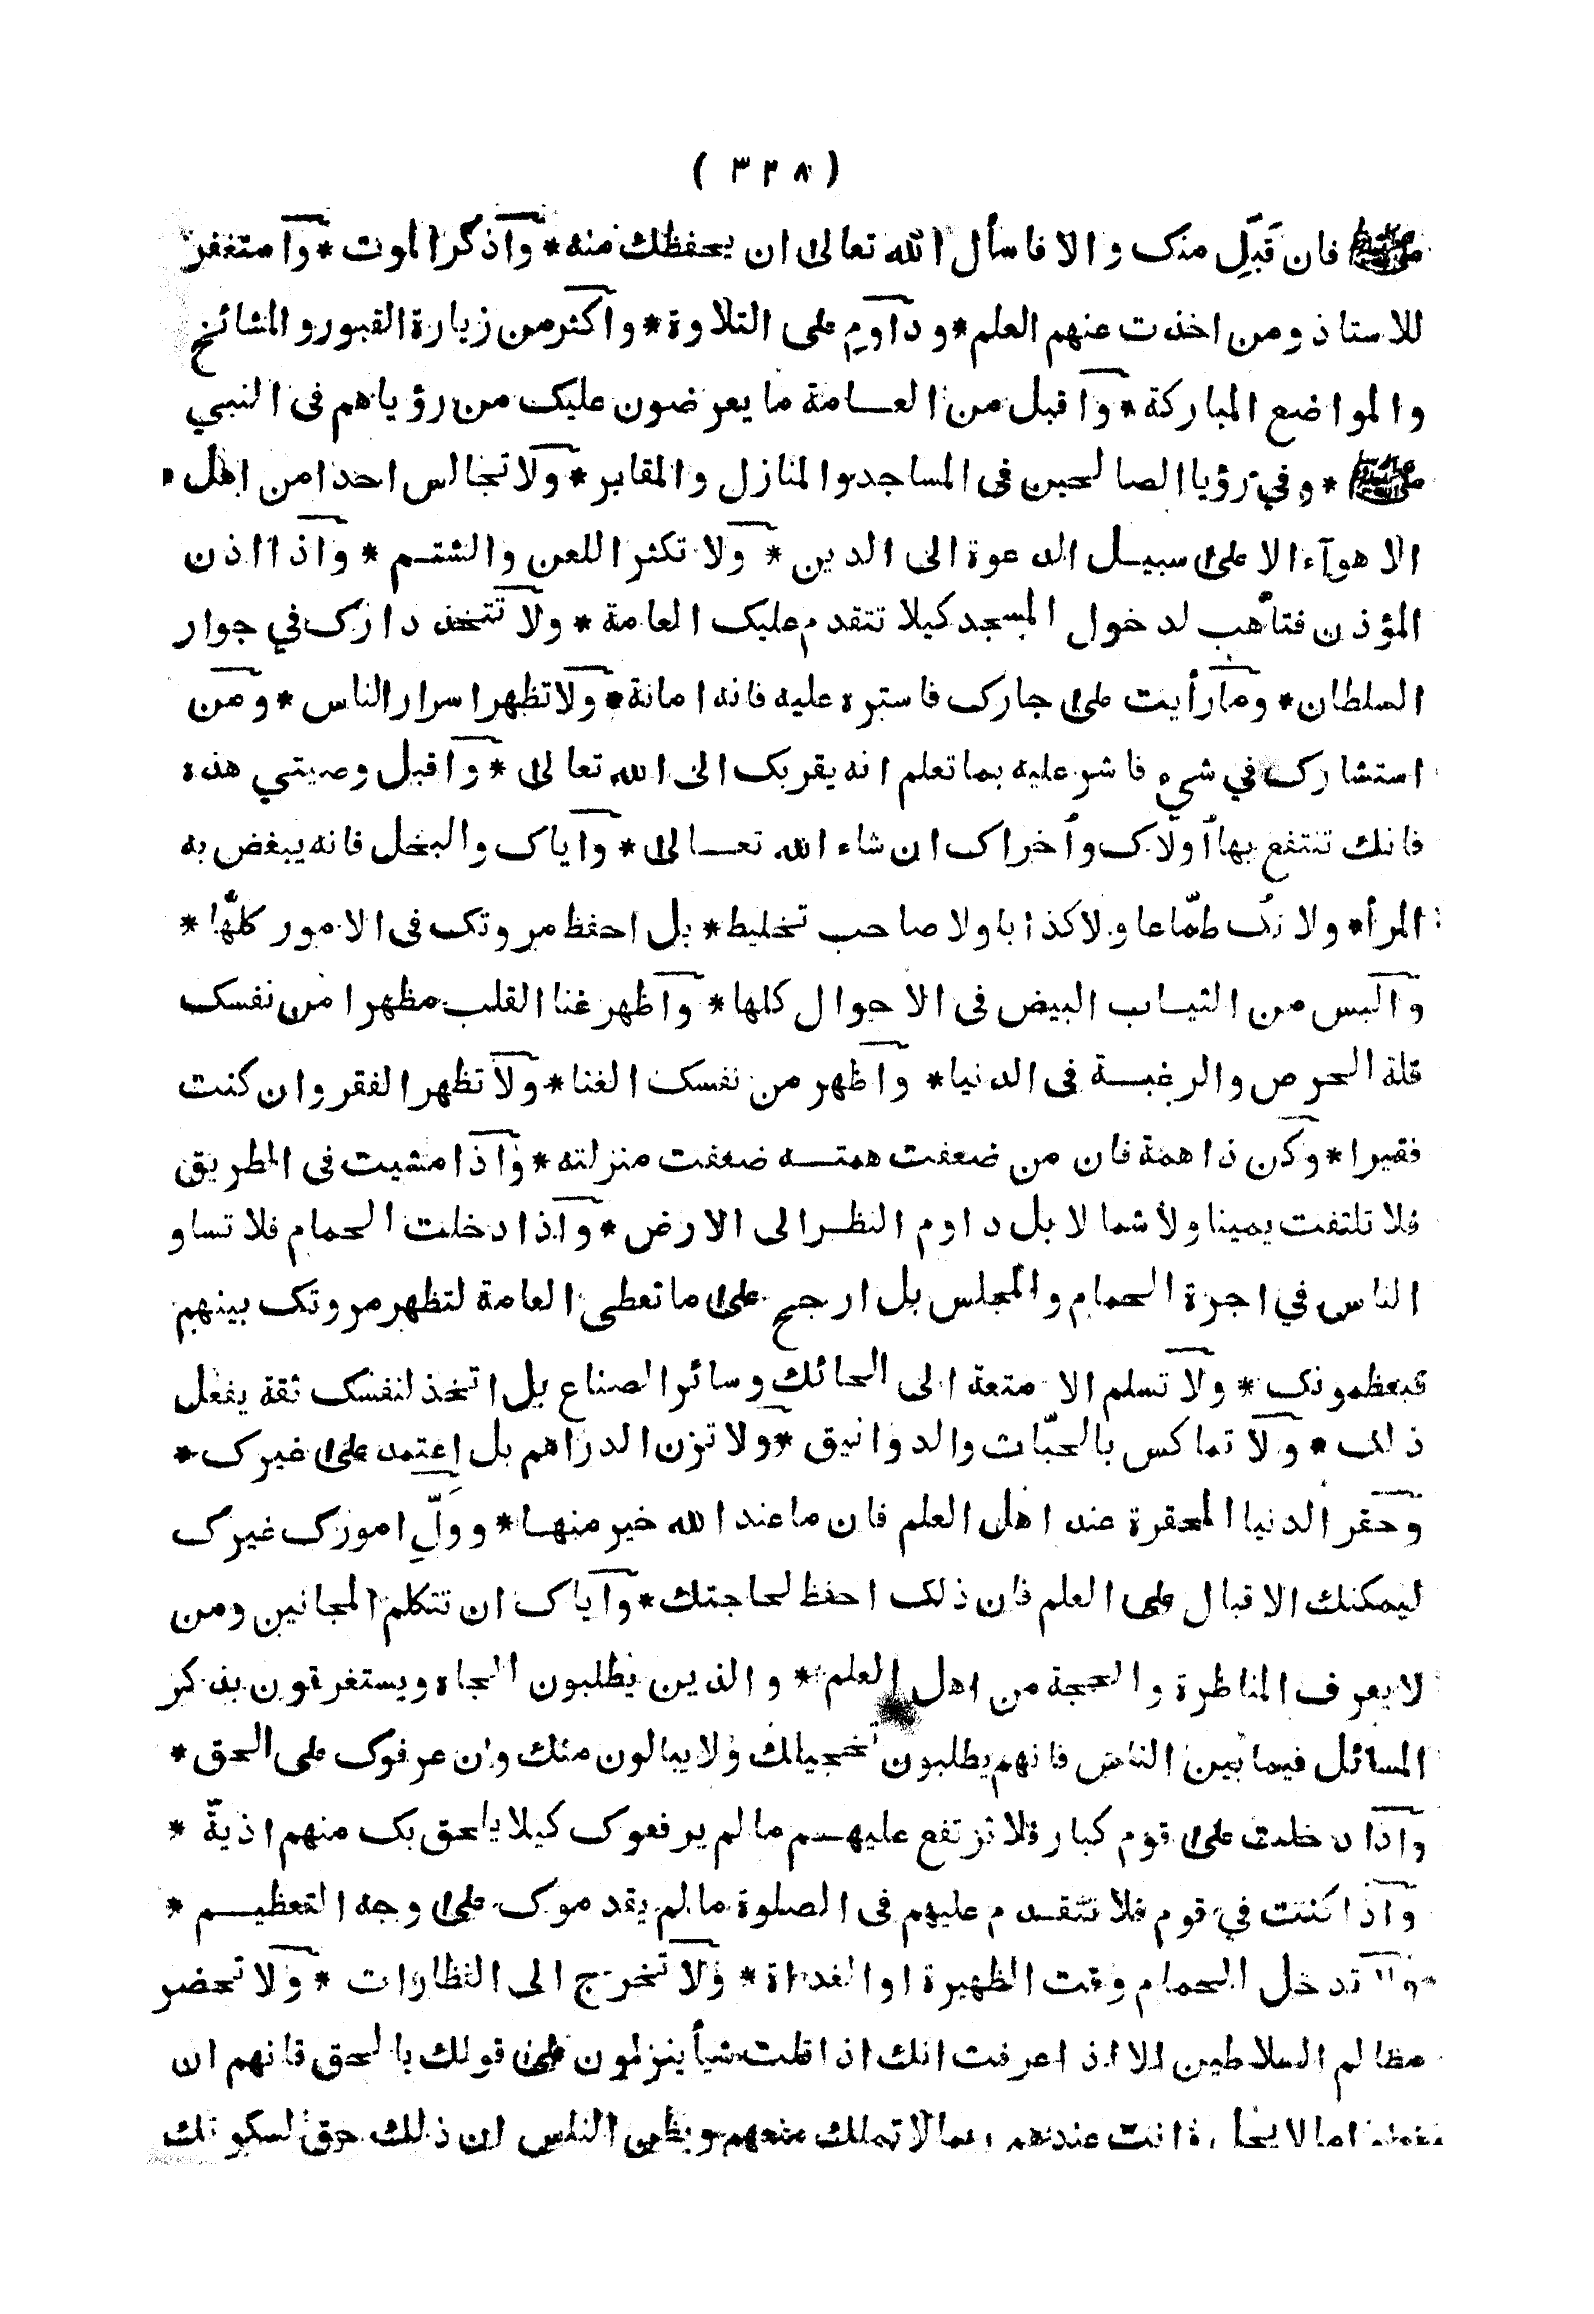 ( ٣٢٨ )
ﷺ فان قَبِل منک والا فاسأل الله تعالى ان يحفظك منه * واذكر الموت * واستغفر
للاستاذ ومن اخذت عنهم العلم * وداوِم على التلاوة * واكثر من زيارة القبور والمشائخ
والمواضع المباركة * واقبل من العامة ما يعرضون عليک من رؤياهم فى النبي
ﷺ * وفي رؤيا الصالحين فى المساجد والمنازل والمقابر * ولا تجالس احدا من اهل
الاهوآء الا على سبيل الدعوة الى الدين * ولا تكثر اللعن والشتم * واذا اذن
المؤذن فتأهب لدخول المسجد كيلا تتقدم عليک العامة * ولا تتخذ دارک في جوار
السلطان * وما رأيت على جارک فاستره عليه فانه امانة * ولا تظهر اسرار الناس * ومن
استشارک في شيء فاشر عليه بما تعلم انه يقربک الى الله تعالى * واقبل وصيتي هذه
فانك تنتفع بها اُولاک واُخراک ان شاء الله تعالى * واياک والبخل فانه يبغض به
المرأ * ولا تک طمّاعا ولا كذابا ولا صاحب تخليط * بل احفظ مروتک فى الامور كلّها *
والبس من الثياب البيض فى الاحوال كلها * واظهر غنا القلب مظهرا من نفسک
قلة الحرص والرغبة فى الدنيا * واظهر من نفسک الغنا * ولا تظهر الفقر وان كنت
فقيرا * وكن ذا همة فان من ضعفت همته ضعفت منزلته * واذا مشيت فى الطريق
فلا تلتفت يمينا ولا شمالا بل داوم النظر الى الارض * واذا دخلت الحمام فلا تساو
الناس في اجرة الحمام والمجلس بل ارجح على ما تعطى العامة لتظهر مروتک بينهم
فيعظمونک * ولا تسلم الامتعة الى الحائك وسائر الصناع بل اتخذ لنفسک ثقة يفعل
ذلک * ولا تماكس بالحبّات والدوانيق * ولا تزن الدراهم بل اعتمد على غيرک *
وحقر الدنيا المحقرة عند اهل العلم فان ما عند الله خير منها * وولِّ امورک غيرک
ليمكنك الاقبال على العلم فان ذلک احفظ لحاجتك * واياک ان تتكلم المجانين ومن
لا يعرف المناظرة والحجة من اهل العلم * والذين يطلبون الجاه ويستغرقون بذكر
المسائل فيما بين الناس فانهم يطلبون تخجيلك ولا يبالون منك وان عرفوک على الحق *
واذا دخلت على قوم كبار فلا ترتفع عليهم ما لم يرفعوک كيلا يلحق بک منهم اذيةّ *
واذا كنت في قوم فلا تتقدم عليهم فى الصلوة ما لم يقدموک على وجه التعظيم *
ولا تدخل الحمام وقت الظهيرة او الغداة * ولا تخرج الى النظارات * ولا تحضر
مظالم السلاطين الا اذا عرفت انك اذا قلت شيأ ينزلون على قولك بالحق فانهم ان
فعلوا ما لا يحل وانت عندهم ربما لا تملك منعهم ويظن الناس ان ذلك حق لسكوتك